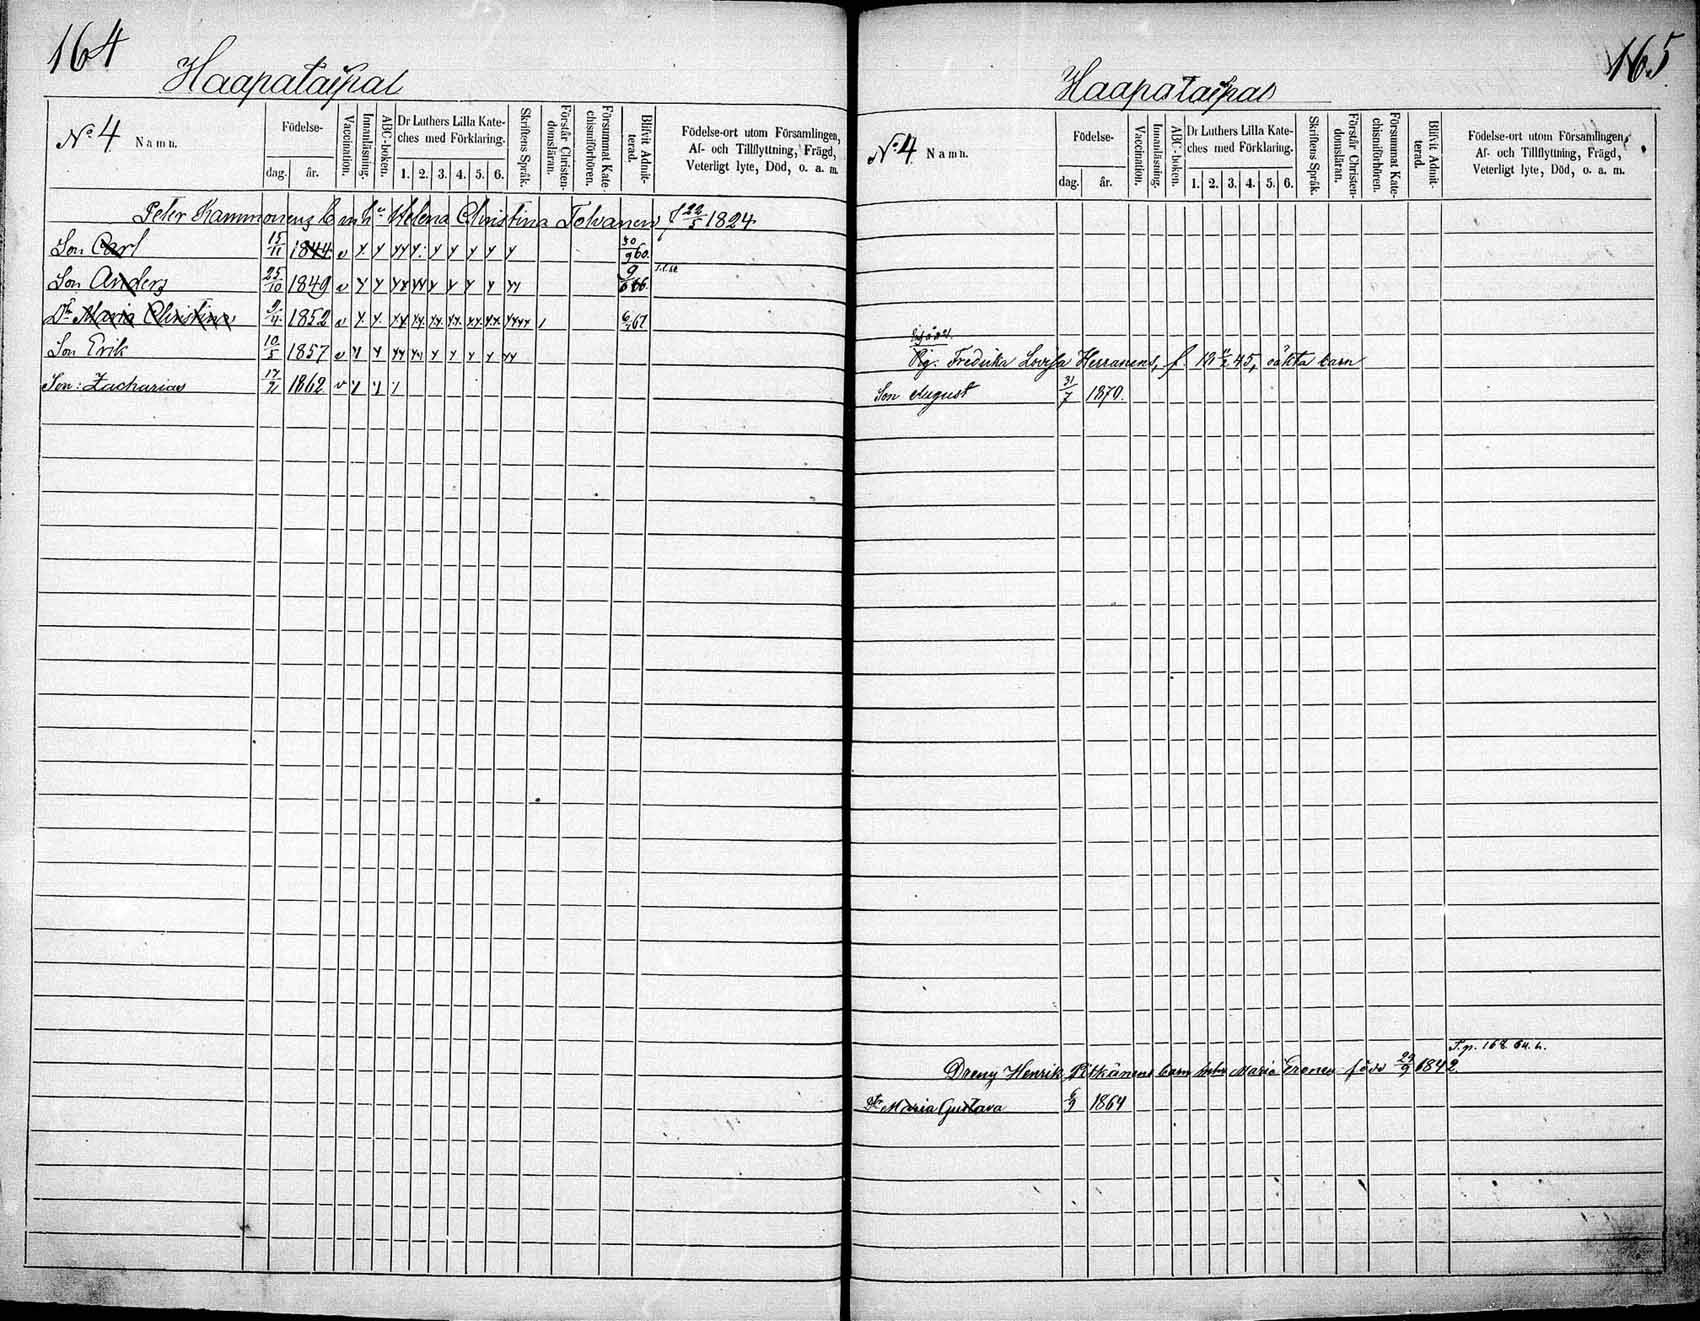 164
Haapataipal
No 4 Namn.
Födelse-
dag. år.
Vaccination.
Innanläsning.
ABC-boken.
Dr Luthers Lilla Kate-
ches med Förklaring.
1. 2. 3. 4. 5. 6.
Skriftens Språk.
Förstår Christen-
domsläran.
Försummat Kate-
chismiförhören.
Blifvit Admit-
terad.
Födelse-ort utom Församlingen,
Af- och Tillflyttning, Frägd,
Veterligt lyte, Död, o. a. m.
Peter Kammonens barn h. Helena Christina Tolvanen, f 22/5 1824
Son Carl 15/11 1844 v 30/9 60.
Son Anders 25/10 1849 v 9/6 66.
Dr Maria Christina 2/4 1852 v 6/7 67
Son Erik 10/5 1857 v
Son: Zacharias 17/2 1862 v
165
Haapataipal
No 4 Namn.
Födelse-
dag. år.
Vaccination.
Innanläsning.
ABC-boken.
Dr Luthers Lilla Kate-
ches med Förklaring.
1. 2. 3. 4. 5. 6.
Skriftens Språk.
Förstår Christen-
domsläran.
Försummat Kate-
chismiförhören.
Blifvit Admit-
terad.
Födelse-ort utom Församlingen,
Af- och Tillflyttning, Frägd,
Veterligt lyte, Död, o. a. m.
Pig. Fredrika Lovisa Herranens, f. 45, oäkta barn
Son August 31/7 1870.
T. p. 168
Dreng Henrik Pitkänens barn Maria född 29/9 1842.
Dr Maria Gustava 1864